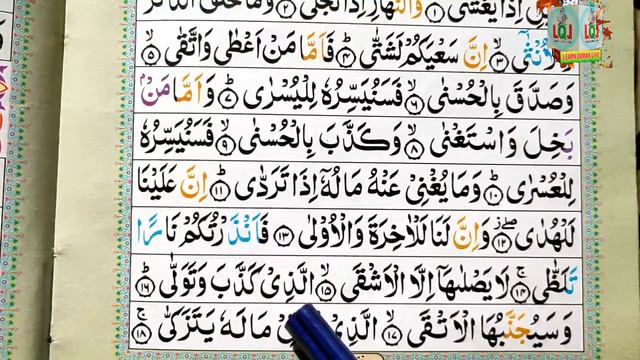 اِذَا يَغْشٰى ۙ‏﴿۱﴾ وَالنَّهَارِ اِذَا تَجَلّٰى ۙ‏﴿۲﴾ وَمَا خَلَقَ الذَّكَرَ
وَالْاُنْثٰٓى ۙ‏﴿۳﴾ اِنَّ سَعْيَكُمْ لَشَتّٰى ؕ‏﴿۴﴾ فَاَمَّا مَنْ اَعْطٰى وَاتَّقٰى ۙ‏﴿۵﴾
وَصَدَّقَ بِالْحُسْنٰى ۙ‏﴿۶﴾ فَسَنُيَسِّرُهٗ لِلْيُسْرٰى ؕ‏﴿۷﴾ وَاَمَّا مَنْۢ
بَخِلَ وَاسْتَغْنٰى ۙ‏﴿۸﴾ وَكَذَّبَ بِالْحُسْنٰى ۙ‏﴿۹﴾ فَسَنُيَسِّرُهٗ
لِلْعُسْرٰى ؕ‏﴿۱۰﴾ وَمَا يُغْنِىْ عَنْهُ مَالُهٗۤ اِذَا تَرَدّٰى ؕ‏﴿۱۱﴾ اِنَّ عَلَيْنَا
لَلْهُدٰى ۖ‏﴿۱۲﴾ وَاِنَّ لَنَا لَلْاٰخِرَةَ وَالْاُوْلٰى ‏﴿۱۳﴾ فَاَنْذَرْتُكُمْ نَارًا
تَلَظّٰى ۚ‏﴿۱۴﴾ لَا يَصْلٰٮهَاۤ اِلَّا الْاَشْقَى ۙ‏﴿۱۵﴾ الَّذِىْ كَذَّبَ وَتَوَلّٰى ؕ‏﴿۱۶﴾
وَسَيُجَنَّبُهَا الْاَتْقَى ۙ‏﴿۱۷﴾ الَّذِىْ مَالَهٗ يَتَزَكّٰى ۚ‏﴿۱۸﴾
LEARN QURAN LIVE